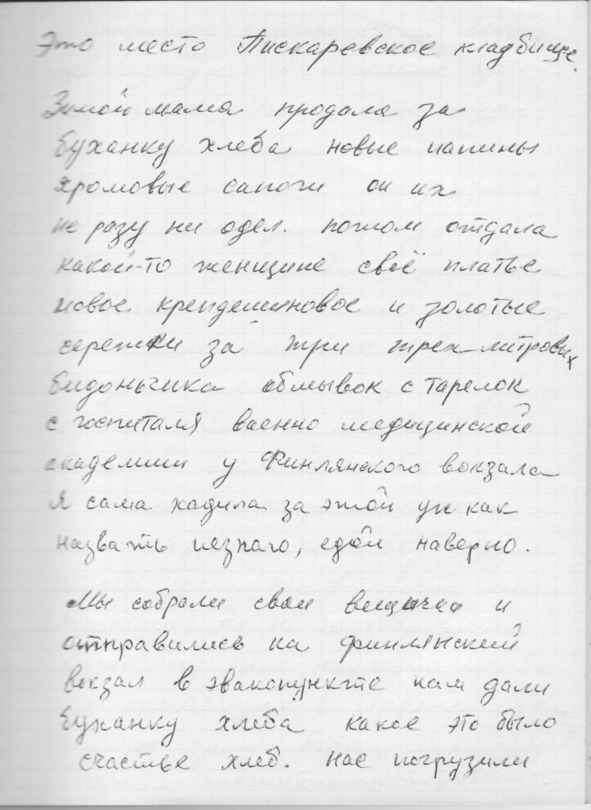 Это место Пискаревское кладбище.
Зимой мама продала за
буханку хлеба новые папины
хромовые сапоги он их
не разу ни одел. потом отдала
какой-то женщине своё платье
новое крепдешиновое и золотые
сережки за три трех-литровых
бидоньчика обмывок с тарелок
с госпиталя военно медицинской
академии у Финлянского вокзала
я сама хадила за этой уж как
назвать незнаю, едой наверно.
Мы собрали свои вещички и
отправились на финлянский
вокзал в эвакопункте нам дали
буханку хлеба какое это было
счастье хлеб. нас погрузили